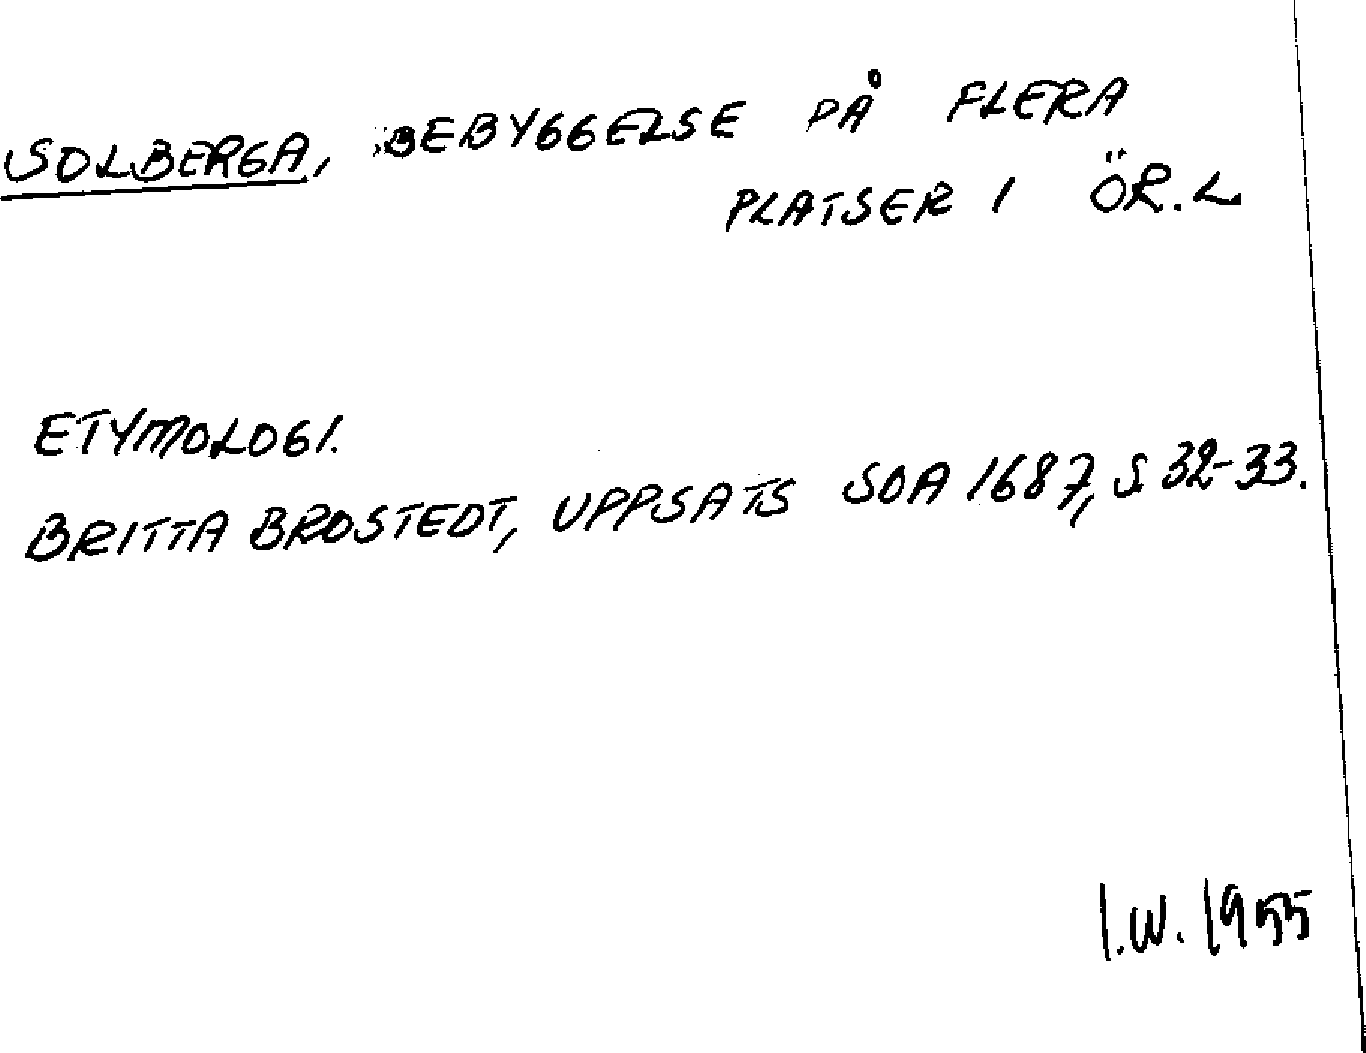 SOLBERGA, BEBYGGELSE PÅ FLERA
PLATSER I ÖR.L
ETYMOLOGI.
BRITTA BROSTEDT, UPPSATS SOA 1687, S 32-33.
I.W. 1955